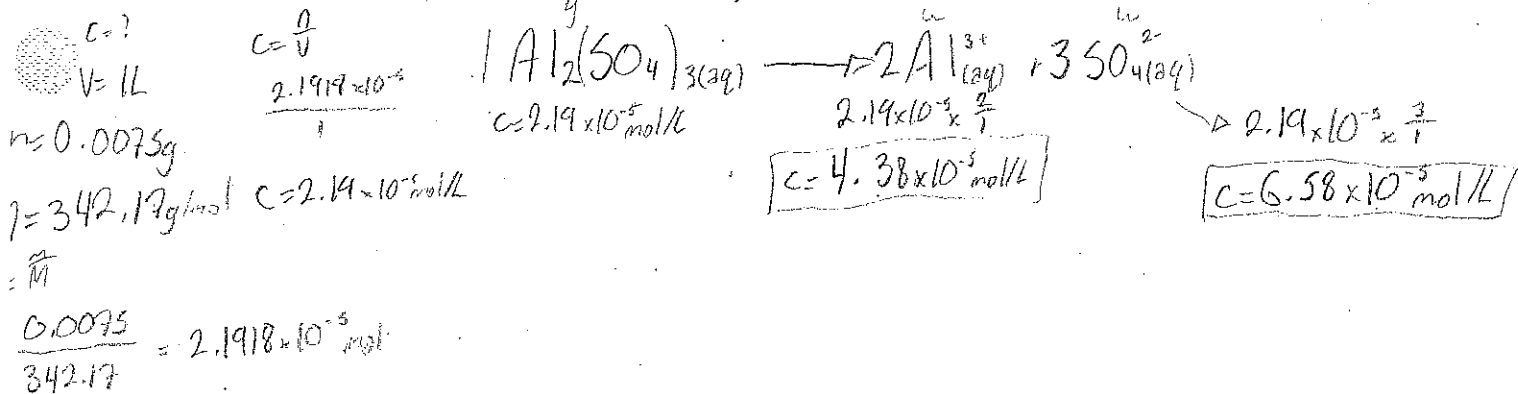 C=?
V=1L
m=0.0075g
=342.17g/mol
=m/M
0.0075/342.17 = 2.1918×10⁻⁵ mol
C=n/V
2.1918×10⁻⁵/1
C=2.19×10⁻⁵mol/L
1Al₂(SO₄)₃(aq) → 2Al³⁺(aq) + 3SO₄²⁻(aq)
C=2.19×10⁻⁵mol/L
2.19×10⁻⁵ × 2/1
C=4.38×10⁻⁵mol/L
→ 2.19×10⁻⁵ × 3/1
C=6.58×10⁻⁵mol/L